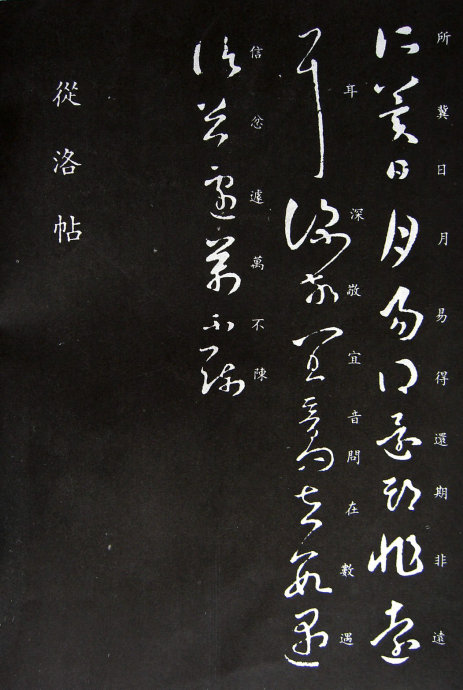 所冀日月易得還期非遠
耳深敬宜音問在數遇
信忿遽萬不陳
從洛帖